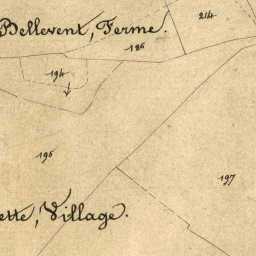 214
Bellevent, Ferme.
186
194
196
197
ette, Village.